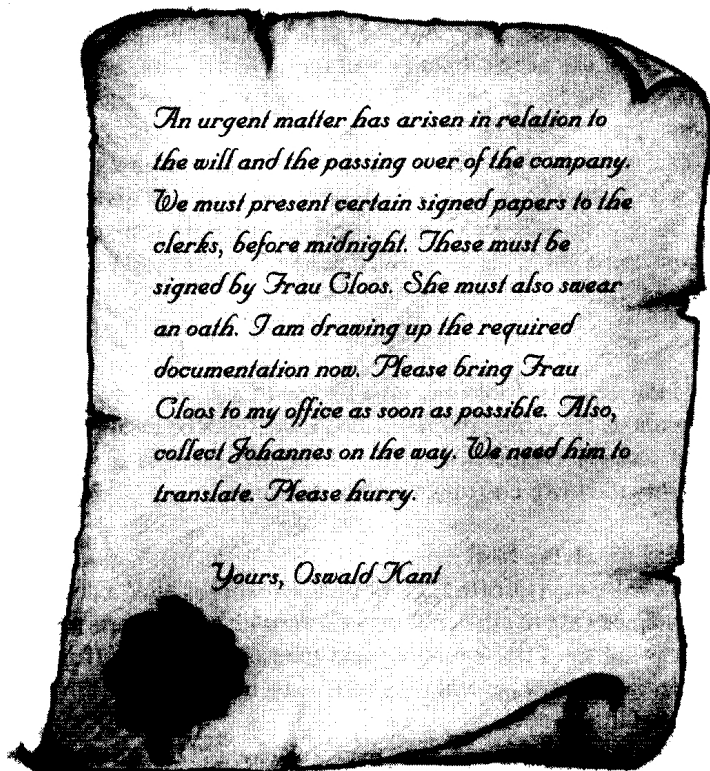 An urgent matter has arisen in relation to
the will and the passing over of the company.
We must present certain signed papers to the
clerks, before midnight. These must be
signed by Frau Cloos. She must also swear
an oath. I am drawing up the required
documentation now. Please bring Frau
Cloos to my office as soon as possible. Also,
collect Johannes on the way. We need him to
translate. Please hurry.
Yours, Oswald Kant